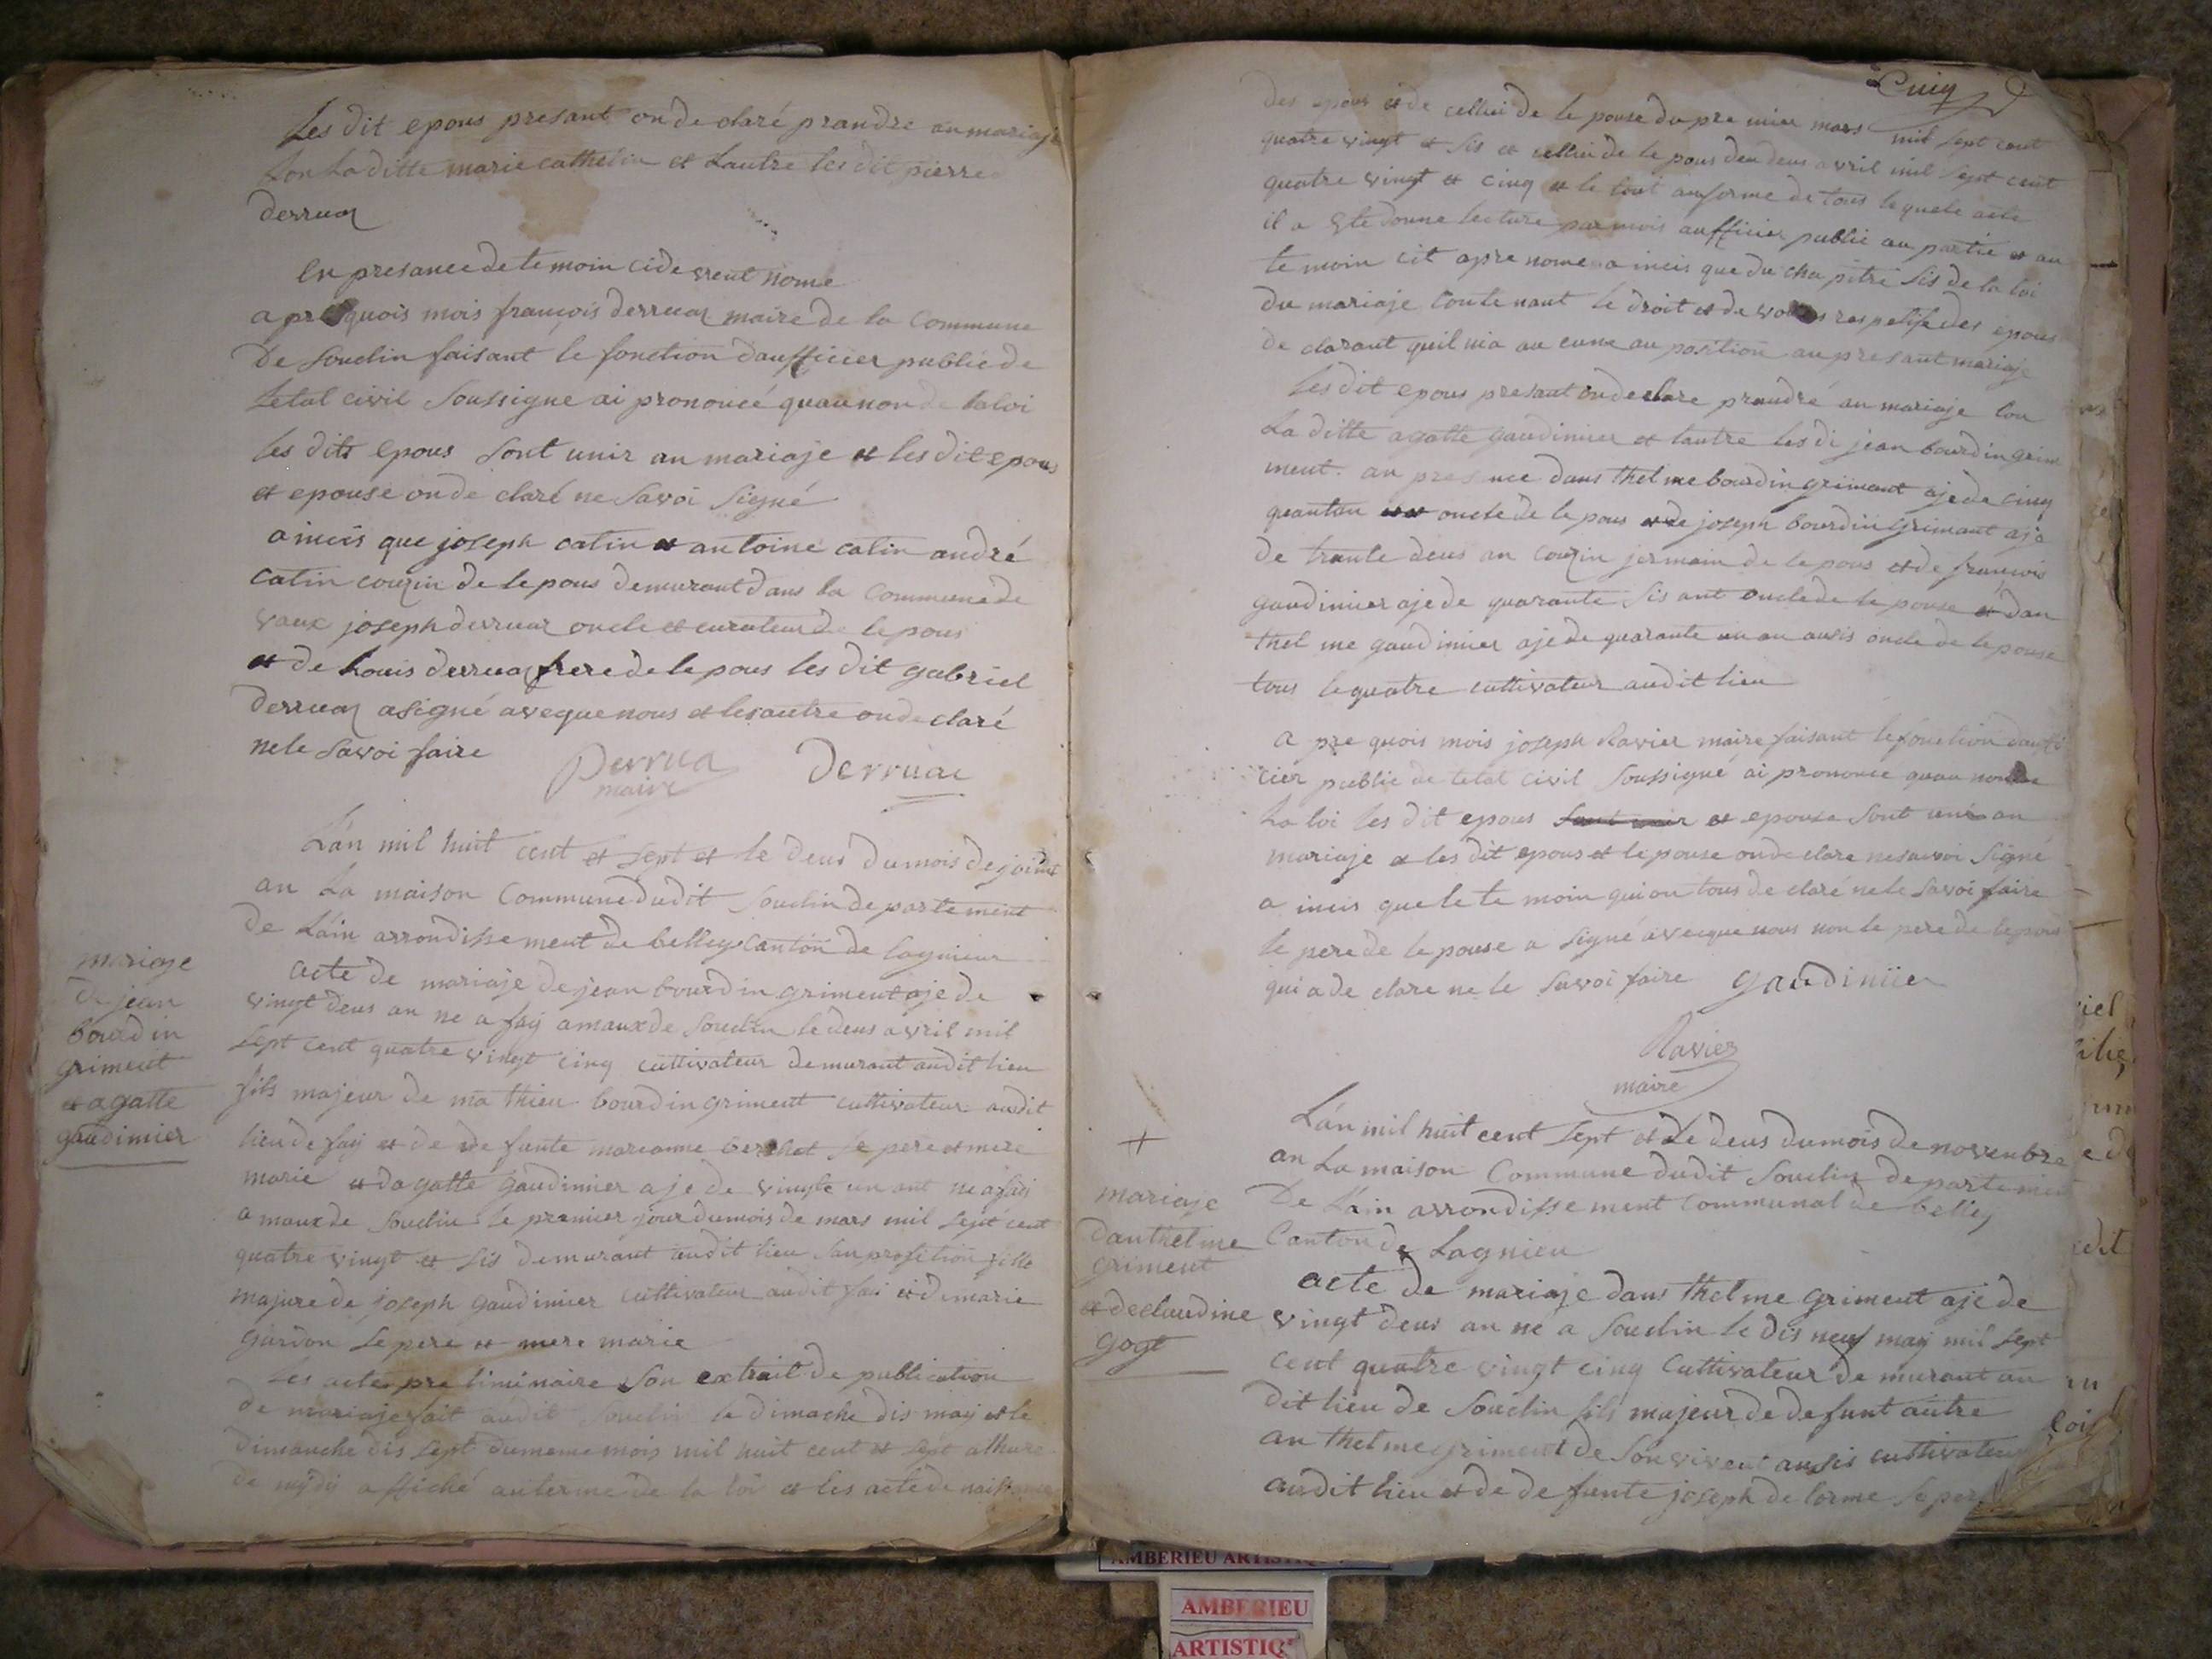 Les dit epous presant onde claré prandre anmariaje
Lon La ditte marie cathelin et Lautre les dit pierre
derruaz
En presance de te moin cidevrent nome
apr quois mois françois derruaz maire de la Commune
De Souclin faisant le fonction daufficier public de
Letat civil Soussigne ai prononcé quaunon de la loi
les dits Epous Sont unir an mariaje et les dit epous
et epouse onde claré ne Savoi Signé
aincis que joseph catin et antoine catin andré
catin couzin de le pous demurant dans la Commune de
vaux joseph derruaz oncle et curateur de le pous
et de Louis derruaz frere de le pous les dit gabriel
derruaz asigné aveque nous et les autre onde claré
nele Savoi faire
Derrua
maire
Derruaz
L'an mil huit cent et sept et le deus du mois de joint
an La maison Commune dudit Souclin departement
de L'ain arrondisse ment de belley Canton de lagnieu
mariaje
de jean
bourdin
griment
et agatte
gaudinier
acte de mariaje de jean bourdin griment aje de
vingt deus an ne a fay amaux de Souclin le deus avril mil
sept cent quatre vingt cinq cultivateur demurant audit lieu
fils majeur de ma thieu bourdin griment cultivateur audit
lieu de fay et de de funte marianne berchet Se pere et mere
marie et dagatte gaudinier aje de vingte un ant ne a fai
a maux de Souclin le premier jour du mois de mars mil sept cent
quatre vingt et sis demurant audit lieu San profition fille
majure de joseph gaudinier cultivateur audit fai et de marie
gardon Se pere et mere marie
Les acte pre liminaire Son extrait de publication
de mariaje fait audit Souclin le dimache dis may et le
dimanche dis sept dumeme mois mil huit cent et sept alhure
de mydy affiché auterme de la loi et les acte de naissance
Cinq
des epous et de cellui de le pouse du premier mars mil sept cent
quatre vingt et sis et cellui de le pous deu deus avril mil sept cent
quatre vingt et cinq et le tout anforme de tous le quele acte
il a Ete donne lecture par mois aufficier public au partie et au
te moin cit apre nome aincis que du cha pitre Sis de la loi
du mariaje tonte nant le droit et de respetife des epous
de clarant quil nia au cune au position au presant mariaje
Les dit epous presant onde clare prandré an mariaje lon
La ditte agatte gaudinier et lautre les di jean bourdin gri
ment. an presence dans thel me bourdin grimant aje de cinq
quantou oncle de le pous et de joseph bourdin grimant aje
de trante deus an couzin jermain de le pous et de françois
gaudinier aje de quarante Sis ant oncle de le pouse et dan
thel me gaudinier aje de quarante un an ausis oncle de le pouse
tous le quatre cultivateur audit lieu
a pre quois mois joseph Ravier maire faisant le fonction daufi
cier public de letat civil Soussigné ai prononcé quau nom de
La loi les dit epous Sont unir et epouse Sont unis an
mariaje et les dit epous et le pouse onde clare ne savoi Signé
a incis que le te moin qui on tous de claré nele Savoi faire
le pere de le pouse a Signé avecque nous non le pere de le pous
qui a de clare ne le Savoi faire
gaudiniier
Ravier
maire
L'an mil huit cent Sept et Le deus du mois de novenbre
an La maison Commune dudit Souclin departement
De L'ain arrondisse ment communal de belley
Canton de Lagnieu
+
mariaje
danthelme
griment
et de claudine
goge
acte de mariaje dans thel me griment aje de
vingt deus an ne a Souclin le dis neuf may mil sept
cent quatre vingt cinq Cultivateur de murant au
dit lieu de Souclin fils majeur de de funt autre
an thel me griment de Son vivent ausis cultivateur
audit lieu et de de funte joseph de lorme Se per
AMBERIEU ARTISTIQ
AMBERIEU
ARTISTIQ